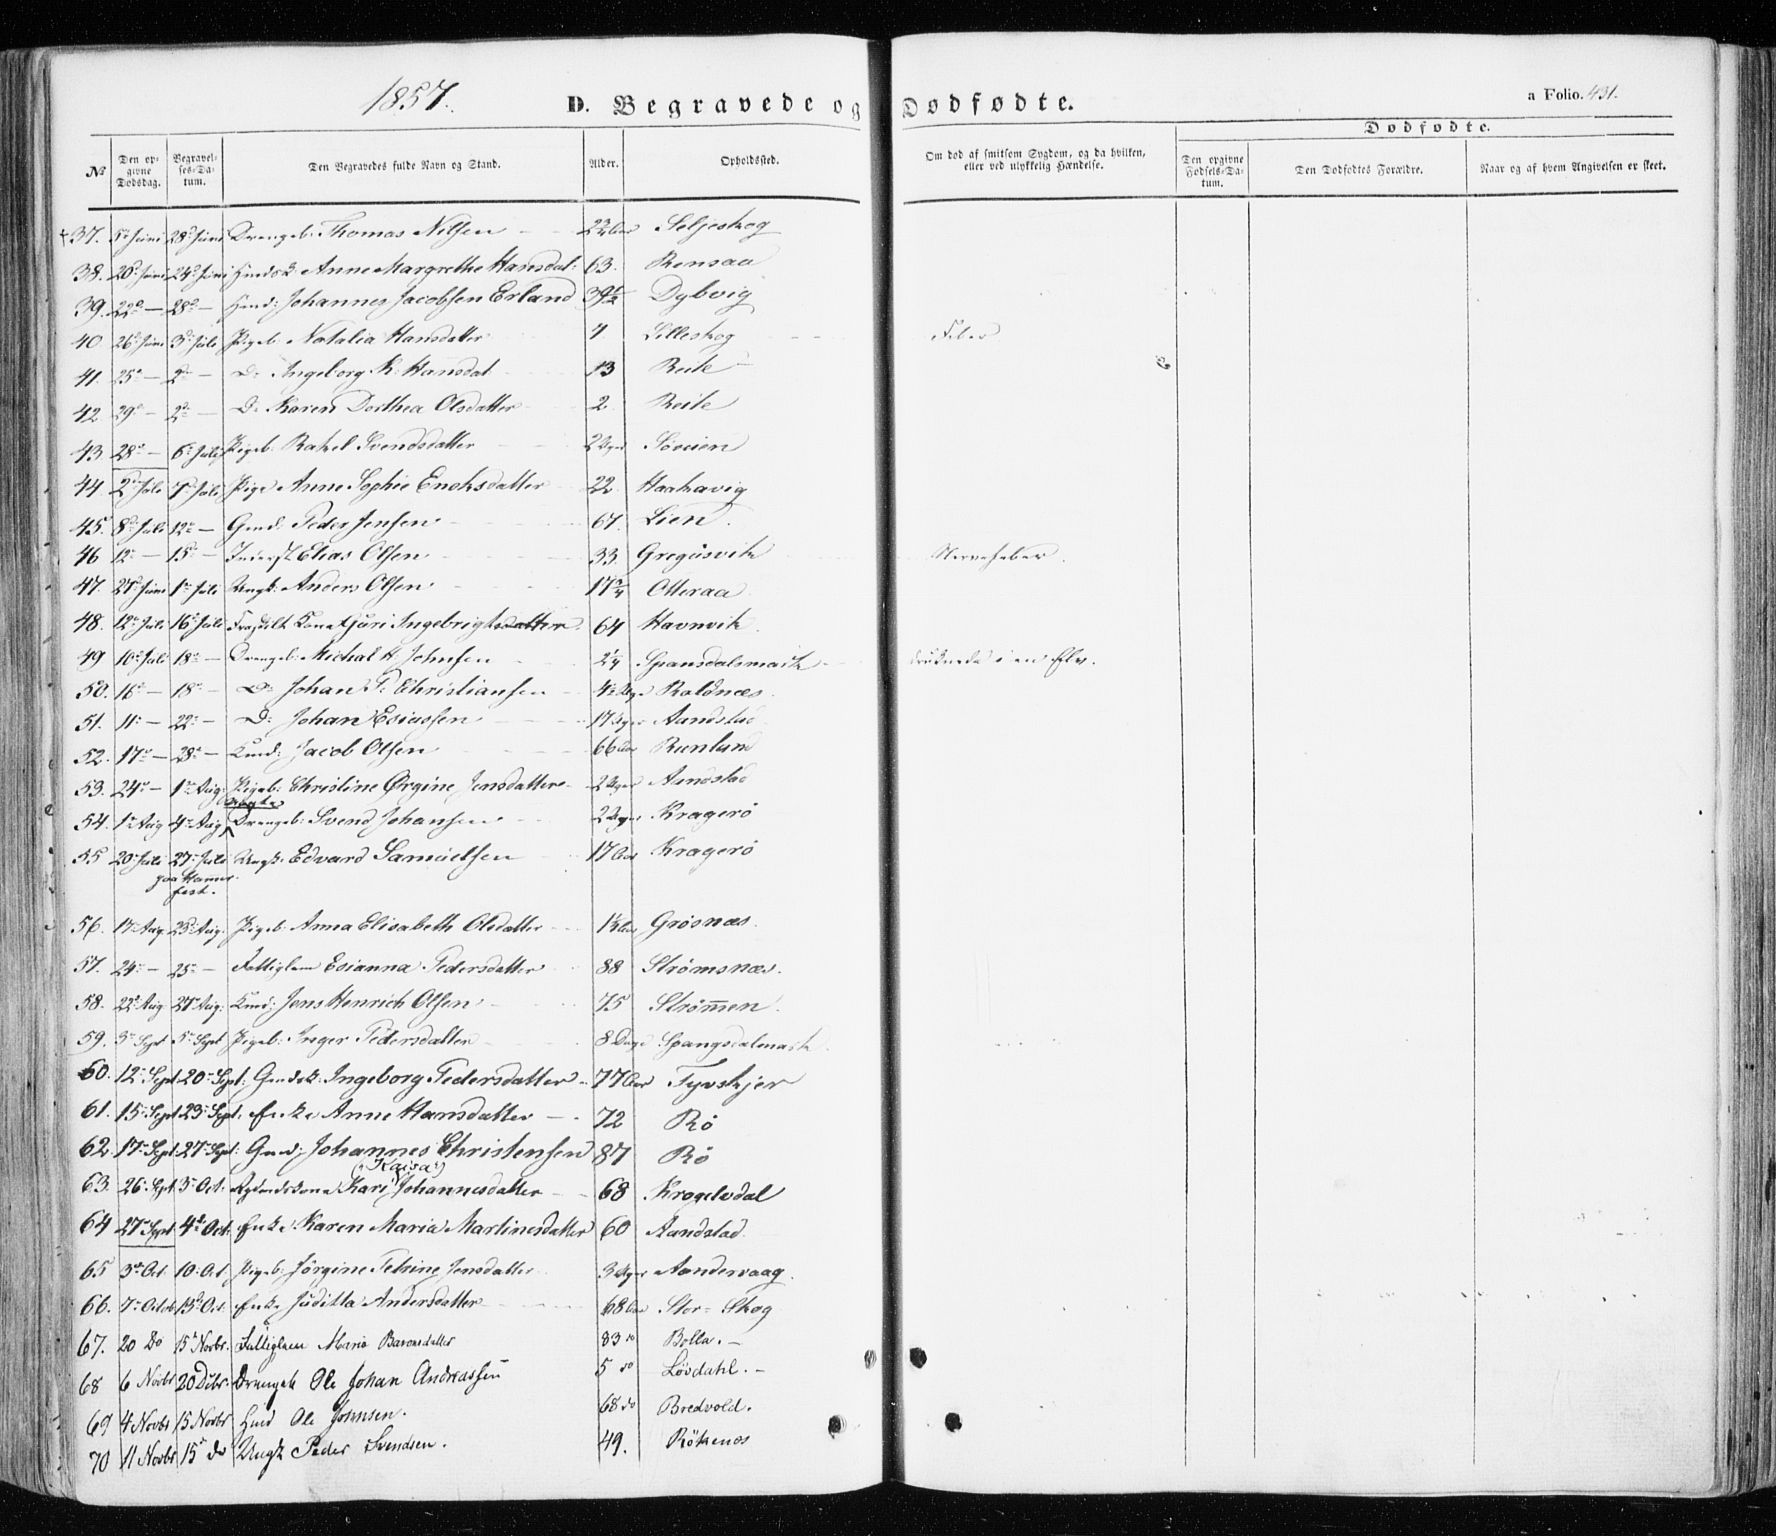 1857.
D. Begravede og Dødfødte.
a Folio. 431.
Dødfødte.
№ Den opgivne Dødsdag. Begravelses-Datum. Den Begravedes fulde Navn og Stand. Alder. Opholdssted. Om død af smitsom Sygdom, og da hvilken, eller ved ulykkelig Hændelse. Den opgivne Fødsels-Datum. Den Dødfødtes Forældre. Naar og af hvem Angivelsen er skeet.
37. 5 Juni 28 Juni Drengeb: Thomas Nilsen 2¾ Aar Seljeskog
38. 20 Juni 24 Juni Huusk. Anne Margrethe Hansdat: 63. Rensaa
39. 22 — 28 — Huusm: Johannes Jacobsen Erland 39½ Dybvig
40 26 Juni 3 Juli Pigeb. Natalia Hansdatter 7 Lilleskog Feber
41. 25 — 2 — D: Ingeborg K: Hansdat 13 Reite
42 29 — 2 — D: Karen Dorthea Olsdatter 2 Reite
43 28 — 6 Juli Pigeb. Rakel Svendsdatter 2 Uger Søveien
44 2 Juli 7 Juli Pige Anne Sophie Enoksdatter 22 Haakavig
45. 8 Juli 12 — Gmd. Peder Jensen 67. Lien.
46 12 — 15 — Inderst Elias Olsen 33. Gregusvik Nervefeber.
47. 27 Juni 1 Juli Ungk. Anders Olsen 17¾ Otteraa
48. 12 Juli 16 Juli Fraskilt Kone Guri Ingebrigtsdatter. 64 Havnvik.
49 10 Juli 18 — Drengeb: Michal H. Johnsen 2¼ Spansdalsmark druknede i en Elv.
50. 16 — 18 — D: Johan P: Christiansen 4½ Uge Roldnæs.
51. 11 — 22 — D: Johan Esiassen 17 Uger Aandstad
52. 17 — 28 — Kmd: Jacob Olsen 66 Aar Runlund
53. 24 — 1 Aug: Pigeb. Christine Ørgine Jensdatter 2 Uger Aandstad
54. 1 Aug 4 Aug uægte Drengeb: Svend Johansen 2 Uger Kragerö
55 20 Juli 27 Juli paa Hammerfest. Ungk. Edvard Samuelsen 17 Aar Kragerö
56. 17 Aug 23 Aug: Pigeb: Anna Elisabeth Olsdatter 1½ Aar Grøsnæs.
57. 24 — 25 — Fattiglem Esianna Pedersdatter 88 Strømsnæs.
58. 22 Aug 27 Aug: Kmd: Jens Henrich Olsen 75 Strømmen.
59. 3 Sept 5 Sept Pigeb: Inger Pedersdatter 8 Dage Spangsdalmark.
60. 12 Sept 20 Sept: Gmdsk: Ingeborg Pedersdatter 77 Aar Tyvskjer
61. 15 Sept 23 Sept. Enke Anne Hansdatter 72 Rö
62. 17 Sept. 27 Sept: Gmd: Johannes Christensen 87 Rö
63. 26 Sept 3 Oct. Kari ("Kaisa") Johannesdatter 68 Krogelvdal
64 27 Sept 4 Oct. Enke Karen Maria Martinesdatter 60 Aandstad.
65 3 Oct. 10 Oct. Pigeb: Jørgine Petrine Jensdatter 3 Uger Aandervaag.
66. 7 Octob 13 Oct. Enke Juditta Andersdatter 68 Aar Stor-Skog
67. 20 Do 15 Novbr. Fattiglem Maria Baronsdatter 83 do Bolla. —
68 6 Novbr 20 Dcbr. Drengeb Ole Johan Andreassen 5 do Løvdahl. —
69 4 Novbr 15 Novbr Huusmd Ole Johnsen. 68 do Bredvold.
70 11 Novbr 15 do Ungk Peder Svendsen. 49. Rökenes